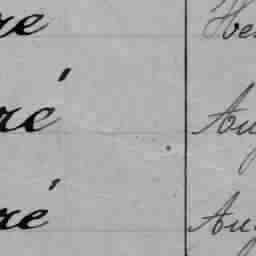 re He
ré Au
ré Au